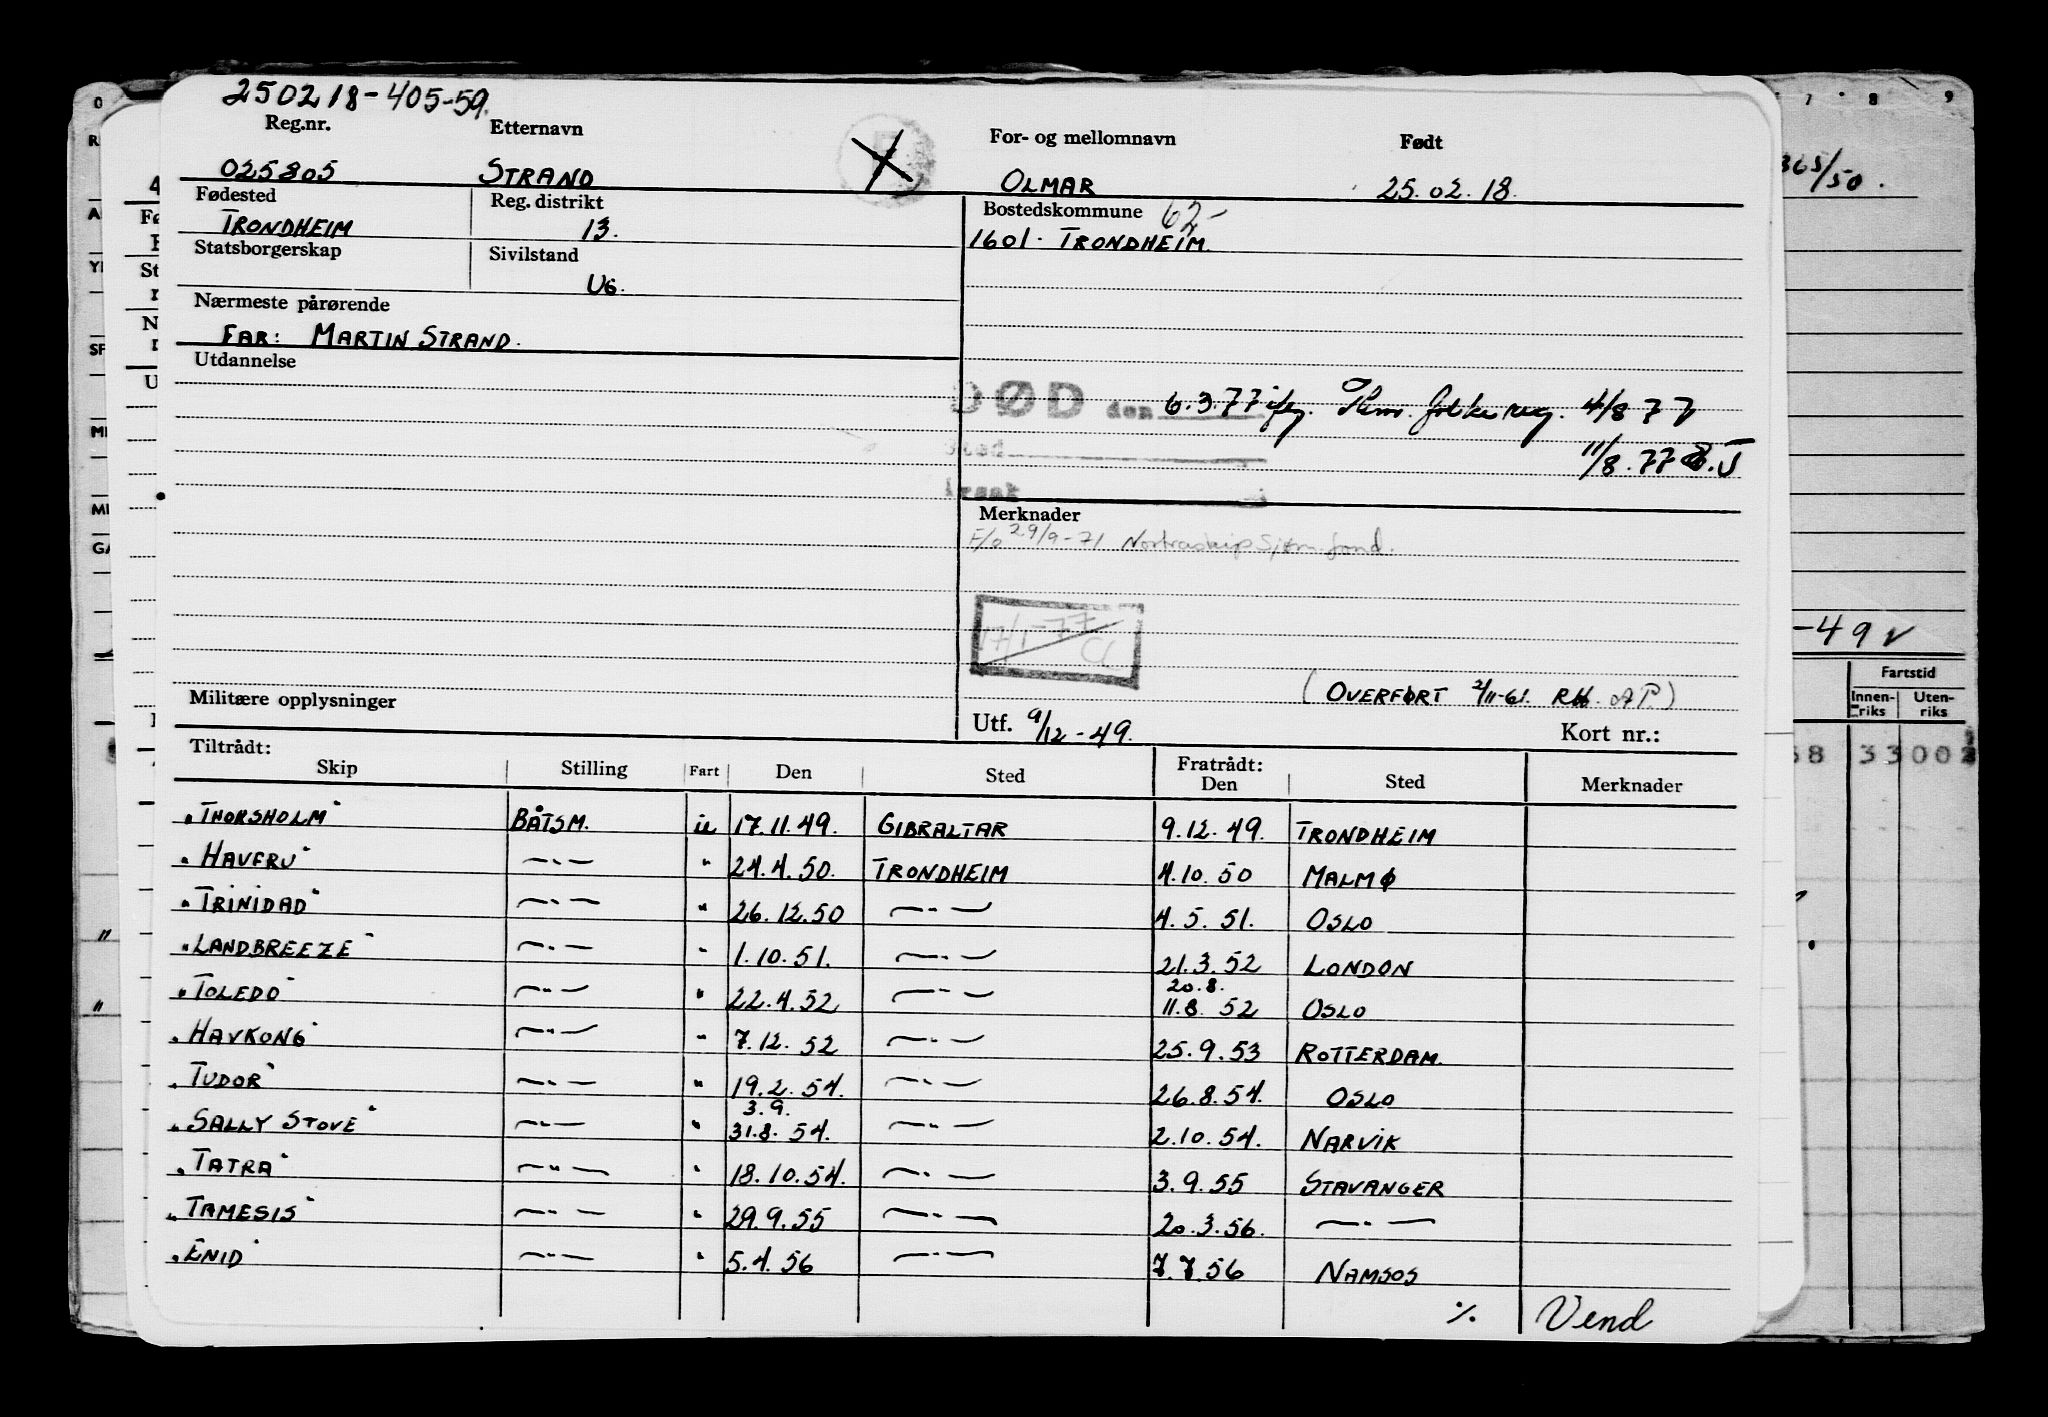 250218-405-59.
Reg.nr. Etternavn For- og mellomnavn Født
025805 STRAND OLMAR 25.02.18.
Fødested Reg. distrikt Bostedskommune 62-
TRONDHEIM 13. 1601. TRONDHEIM.
Statsborgerskap Sivilstand
UG.
Nærmeste pårørende
FAR: MARTIN STRAND.
Utdannelse
DØD den 6.3.77 ifg. Thm. folkereg. 4/8 77
11/8.77
Merknader
F/o 29/9-71 Nortraship Sjøm.fond.
17/1-77
(OVERFØRT 2/11-61. RH. AP.)
Militære opplysninger
Utf. 9/12-49. Kort nr.:
Tiltrådt: Fratrådt:
Skip Stilling Fart Den Sted Den Sted Merknader
"THORSHOLM" BÅTSM. u 17.11.49. GIBRALTAR 9.12.49. TRONDHEIM
"HAVFRU" —"— " 24.4.50. TRONDHEIM 4.10.50 MALMØ
"TRINIDAD" —"— " 26.12.50 —"— 4.5.51. OSLO
"LANDBREEZE" —"— " 1.10.51. —"— 21.3.52 LONDON
20.8.
"TOLEDO" —"— " 22.4.52 —"— 11.8.52 OSLO
"HAVKONG" —"— " 7.12.52 —"— 25.9.53 ROTTERDAM.
"TUDOR" —"— " 19.2.54. —"— 26.8.54. OSLO
3.9.
"SALLY STOVE" —"— " 31.8.54. —"— 2.10.54. NARVIK
"TATRA" —"— " 18.10.54. —"— 3.9.55 STAVANGER
"TAMESIS" —"— " 29.9.55 —"— 20.3.56. —"—
"ENID" —"— " 5.4.56 —"— 7.7.56 NAMSOS
./. Vend
365/50.
-49
Fartstid
Innen-riks Uten-riks